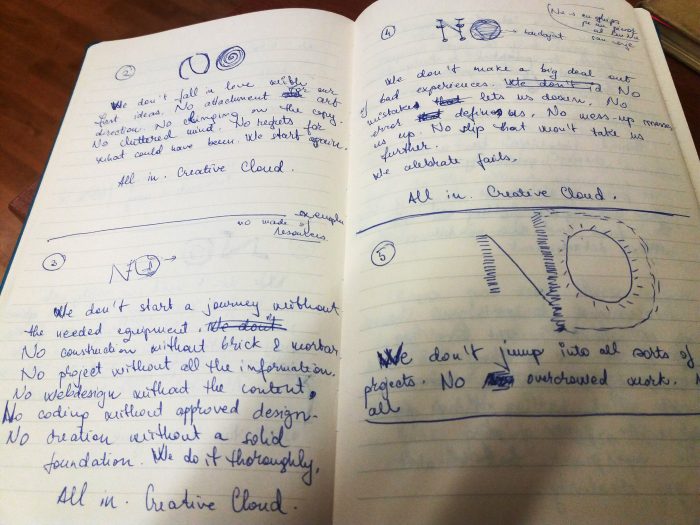 2
NO
We don't fall a love with our
first ideas. No attachment for art
direction. No clinging on the copy.
No cluttered mind. No regrets for
what could have been. We start again.
All in. Creative Cloud.
no made of
resources.
3
NO
We don't start a journey without
the needed equipment. We don't
No construction without brick & mortar.
No project without all the information.
No webdesign without the content,
No coding without approved design.
No creation without a solid
foundation. We do it thoroughly.
All in. Creative Cloud.
4
NO
We don't make a big deal out
of bad experiences. We don't No
mistake that lets us down. No
error that defines us. No mess-up messes
us up. No slip that won't take us
further.
We celebrate fails.
All in. Creative Cloud.
5
NO
We don't jump into all sorts of
projects. No overcrowed work.
all